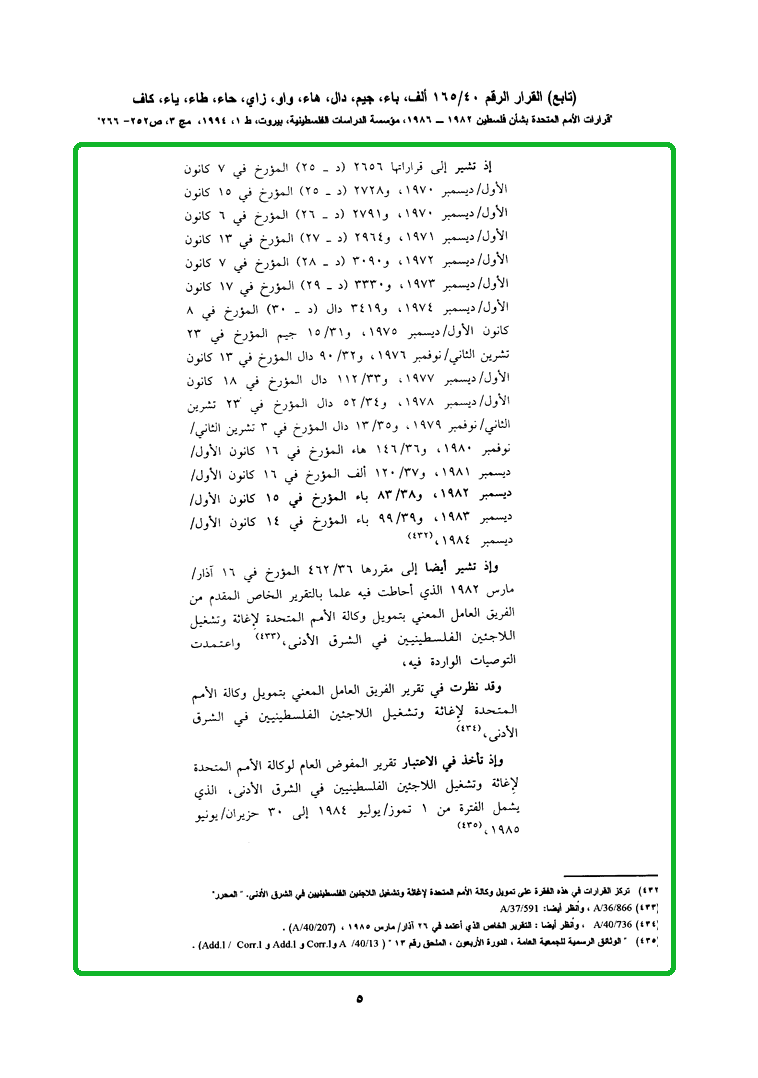 (تابع) القرار الرقم ١٦٥/٤٠ ألف، باء، جيم، دال، هاء، واو، زاي، حاء، طاء، ياء، كاف
"قرارات الأمم المتحدة بشأن فلسطين ١٩٨٢ ــ ١٩٨٦، مؤسسة الدراسات الفلسطينية، بيروت، ط ١، ١٩٩٤، مج ٣، ص٢٥٢- ٢٦٦"
إذ تشير إلى قراراتها ٢٦٥٦ (د ـ ٢٥) المؤرخ في ٧ كانون
الأول/ديسمبر ١٩٧٠، و٢٧٢٨ (د ـ ٢٥) المؤرخ في ١٥ كانون
الأول/ديسمبر ١٩٧٠، و٢٧٩١ (د ـ ٢٦) المؤرخ في ٦ كانون
الأول/ديسمبر ١٩٧١، و٢٩٦٤ (د ـ ٢٧) المؤرخ في ١٣ كانون
الأول/ديسمبر ١٩٧٢، و٣٠٩٠ (د ـ ٢٨) المؤرخ في ٧ كانون
الأول/ديسمبر ١٩٧٣، و٣٣٣٠ (د ـ ٢٩) المؤرخ في ١٧ كانون
الأول/ديسمبر ١٩٧٤، و٣٤١٩ دال (د ـ ٣٠) المؤرخ في ٨
كانون الأول/ديسمبر ١٩٧٥، و١٥/٣١ جيم المؤرخ في ٢٣
تشرين الثاني/نوفمبر ١٩٧٦، و٩٠/٣٢ دال المؤرخ في ١٣ كانون
الأول/ديسمبر ١٩٧٧، و١١٢/٣٣ دال المؤرخ في ١٨ كانون
الأول/ديسمبر ١٩٧٨، و٥٢/٣٤ دال المؤرخ في ٢٣ تشرين
الثاني/نوفمبر ١٩٧٩، و١٣/٣٥ دال المؤرخ في ٣ تشرين الثاني/
نوفمبر ١٩٨٠، و١٤٦/٣٦ هاء المؤرخ في ١٦ كانون الأول/
ديسمبر ١٩٨١، و١٢٠/٣٧ ألف المؤرخ في ١٦ كانون الأول/
ديسمبر ١٩٨٢، و٨٣/٣٨ باء المؤرخ في ١٥ كانون الأول/
ديسمبر ١٩٨٣، و٩٩/٣٩ باء المؤرخ في ١٤ كانون الأول/
ديسمبر ١٩٨٤،(٤٣٢)
وإذ تشير أيضا إلى مقررها ٤٦٢/٣٦ المؤرخ في ١٦ آذار/
مارس ١٩٨٢ الذي أحاطت فيه علما بالتقرير الخاص المقدم من
الفريق العامل المعني بتمويل وكالة الأمم المتحدة لإغاثة وتشغيل
اللاجئين الفلسطينيين في الشرق الأدنى،(٤٣٣) واعتمدت
التوصيات الواردة فيه،
وقد نظرت في تقرير الفريق العامل المعني بتمويل وكالة الأمم
المتحدة لإغاثة وتشغيل اللاجئين الفلسطينيين في الشرق
الأدنى،(٤٣٤)
وإذ تأخذ في الاعتبار تقرير المفوض العام لوكالة الأمم المتحدة
لإغاثة وتشغيل اللاجئين الفلسطينيين في الشرق الأدنى، الذي
يشمل الفترة من ١ تموز/يوليو ١٩٨٤ إلى ٣٠ حزيران/يونيو
١٩٨٥،(٤٣٥)
٤٣٢) تركز القرارات في هذه الفقرة على تمويل وكالة الأمم المتحدة لإغاثة وتشغيل اللاجئين الفلسطينيين في الشرق الأدنى. "المحرر"
(٤٣٣) A/36/866 ، وأنظر أيضا: A/37/591
(٤٣٤) A/40/736 ، وأنظر أيضا : التقرير الخاص الذي أعتمد في ٢٦ آذار/ مارس ١٩٨٥ ، (A/40/207) .
(٤٣٥) " الوثائق الرسمية للجمعية العامة ، الدورة الأربعون ، الملحق رقم ١٣ " ( A /40/13 وCorr.1 و Add.1 و Add.1 / Corr.1) .
٥